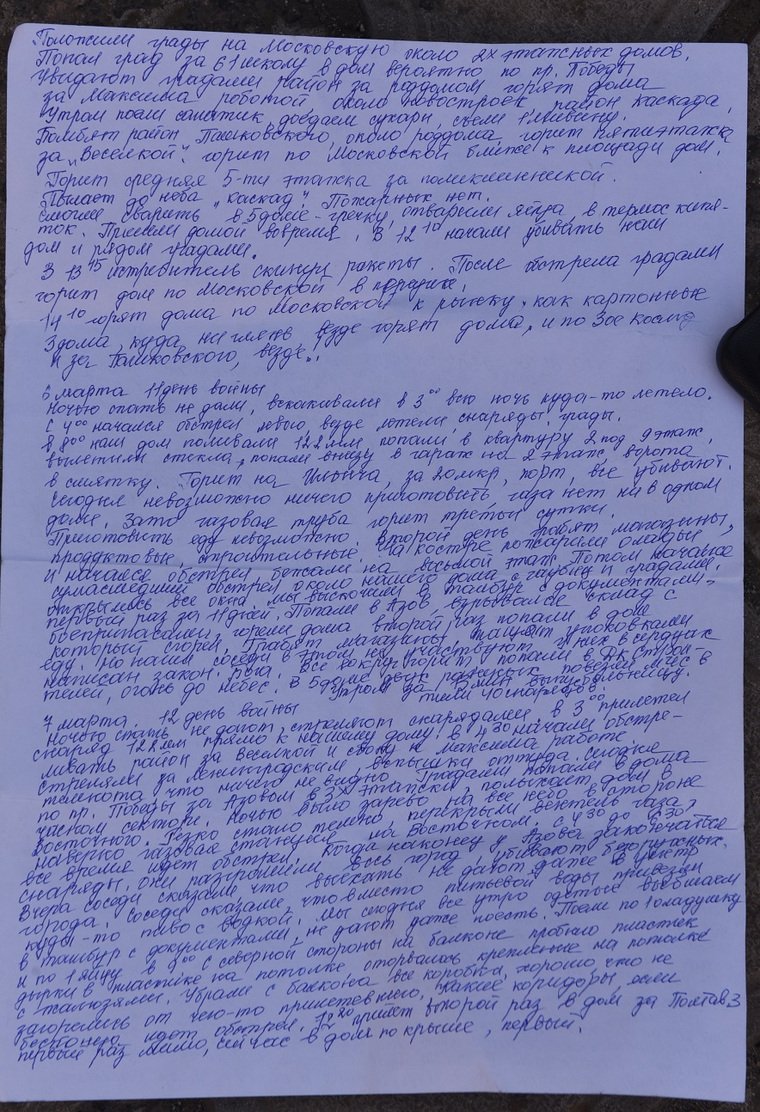 Положили грады на Московскую около 2х этажных домов.
Попал град за 61 школу в дом вероятно по пр. Победы,
Увидают градами район за роддомом горят дома
за Максима работой около новостроек район каскада.
Утром поели салатик, доедаем сухари, съели 1 мивину.
Бомбят район Пашковского, около роддома, горит пятиэтажка
за „Веселкой", горит по Московской ближе к площади дом.
Горит средняя 5-ти этажка за поликлиникой.
Пылает до неба „каскад". Пожарных нет.
Смогли сварить в 5 доме - гречку, отварили яйца, в термос кипя-
ток. Пришли домой вовремя. В 12 10 начали убивать наш
дом и рядом градами.
В 13 15 истребитель скинул ракеты. После обстрела градами
горит дом по Московской в
14 10 горят дома по Московской к рынку, как картонные
3 дома, куда не глянь везде горят дома, и по Зое Космод
и за Пашковского, везде..
6 марта 11 день войны
Ночью спать не дали, вскакивали в 3 00 всю ночь куда-то летело.
С 4 00 начался обстрел левого, везде летели снаряды, грады.
В 8 00 наш дом поливали 122 мм, попали в квартиру 2 под 9 этаж,
вылетили стекла, попали внизу в гараж на 2 этаж, ворота
в смятку. Горит на Ильича, за 20 мкр, порт, все убивают.
Сегодня невозможно ничего приготовить газа нет ни в одном
доме. Зато газовая труба горит третьи сутки.
Приготовить еду невозможно. Второй день грабят магазины,
продуктовые, строительные. На костре пожарили оладьи
и начался обстрел бежали на восьмой этаж. Потом начался
сумасшедший обстрел около нашего дома с гаубиц и градами,
открылись все окна, мы выскочили в тамбур с документами,
первый раз за 11 дней. Попали в Азов, взрывался склад с
боеприпасами, горели дома второй раз попали в дом
который сгорел. Грабят магазины, тащат упаковками
еду. Но наши соседи в этом не участвуют у них в сердцах
написан закон Бога. Все вокруг горит попали в ДК Строи-
телей, огонь до небес. В 5 доме двух раненых повезли МЧС в
больницу.
Утром за 3 мин выпус-
тили 40 снарядов.
7 марта. 12 день войны
Ночью спать не дают, стреляют снарядами. в 3 00 прилетел
снаряд 122 мм прямо к нашему дому. в 4 30 начали обстре-
ливать район за Веселкой и к Максима работе
стреляли за Ленинградским, вспышки оттуда. Сегодня
темнота что ничего не видно. Градами попали в дома
по пр. Победы за Азовом в 3х этажки, полыхает дом в
частном секторе. Ночью было зарево на все небо в стороне
Восточного. Резко стало темно перекрыли вентель газа,
наверно газовая станция на Восточном. С 4 30 до 6 30
все время идет обстрел. Когда наконец у Азова закончатся
снаряды. Они разгромили весь город, убивают безоружных.
Вчера соседи сказали что выехать не дают даже в центр
города. Соседи сказали, что вместо питьевой воды привезли
куда-то пиво с водкой. Мы сегодня все утро одетые выбегаем
в тамбур с документами, не дают даже поесть. Поели по 1 оладушку
и по 1 яйцу. в 9 00 с северной стороны на балконе пробило пластик
дырки в пластике на потолке оторвалось крепление на потолке
с жалюзями. Убрали с балкона все коробки, хорошо что не
загорелись от чего-то прилетевшего,
беспокоющ идет обстрел. прилет второй раз в дом за Полтав 3
первый раз мимо, сейчас в дом по крыше, первый.